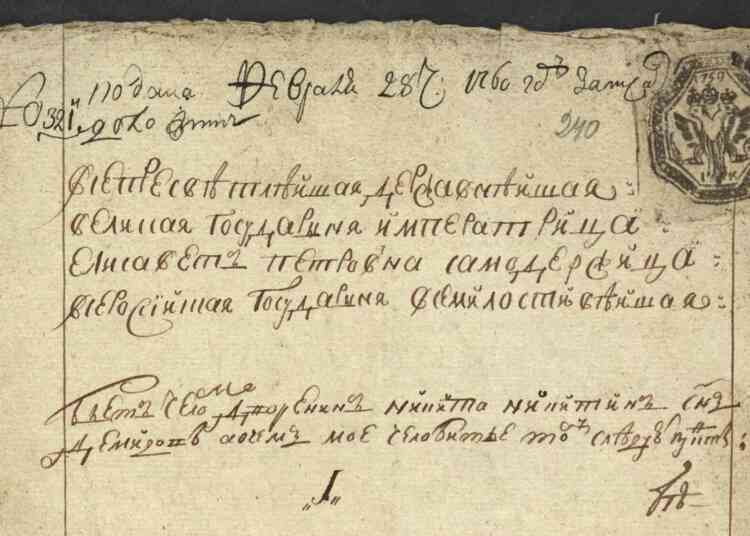 подана Февраля 28ч 1760 годъ Записа
№ 321й
240
всепресвѣтлѣйшая державнѣйшая
великая Государиня императрица
елисаветъ петровна самодержица
всеросiйская Государиня всемилостивѣйшая
бьетъ челомъ дворенинъ никита никитинъ снъ
Демидовъ а о чемъ мое челобитье тому слѣдуютъ пункты
1